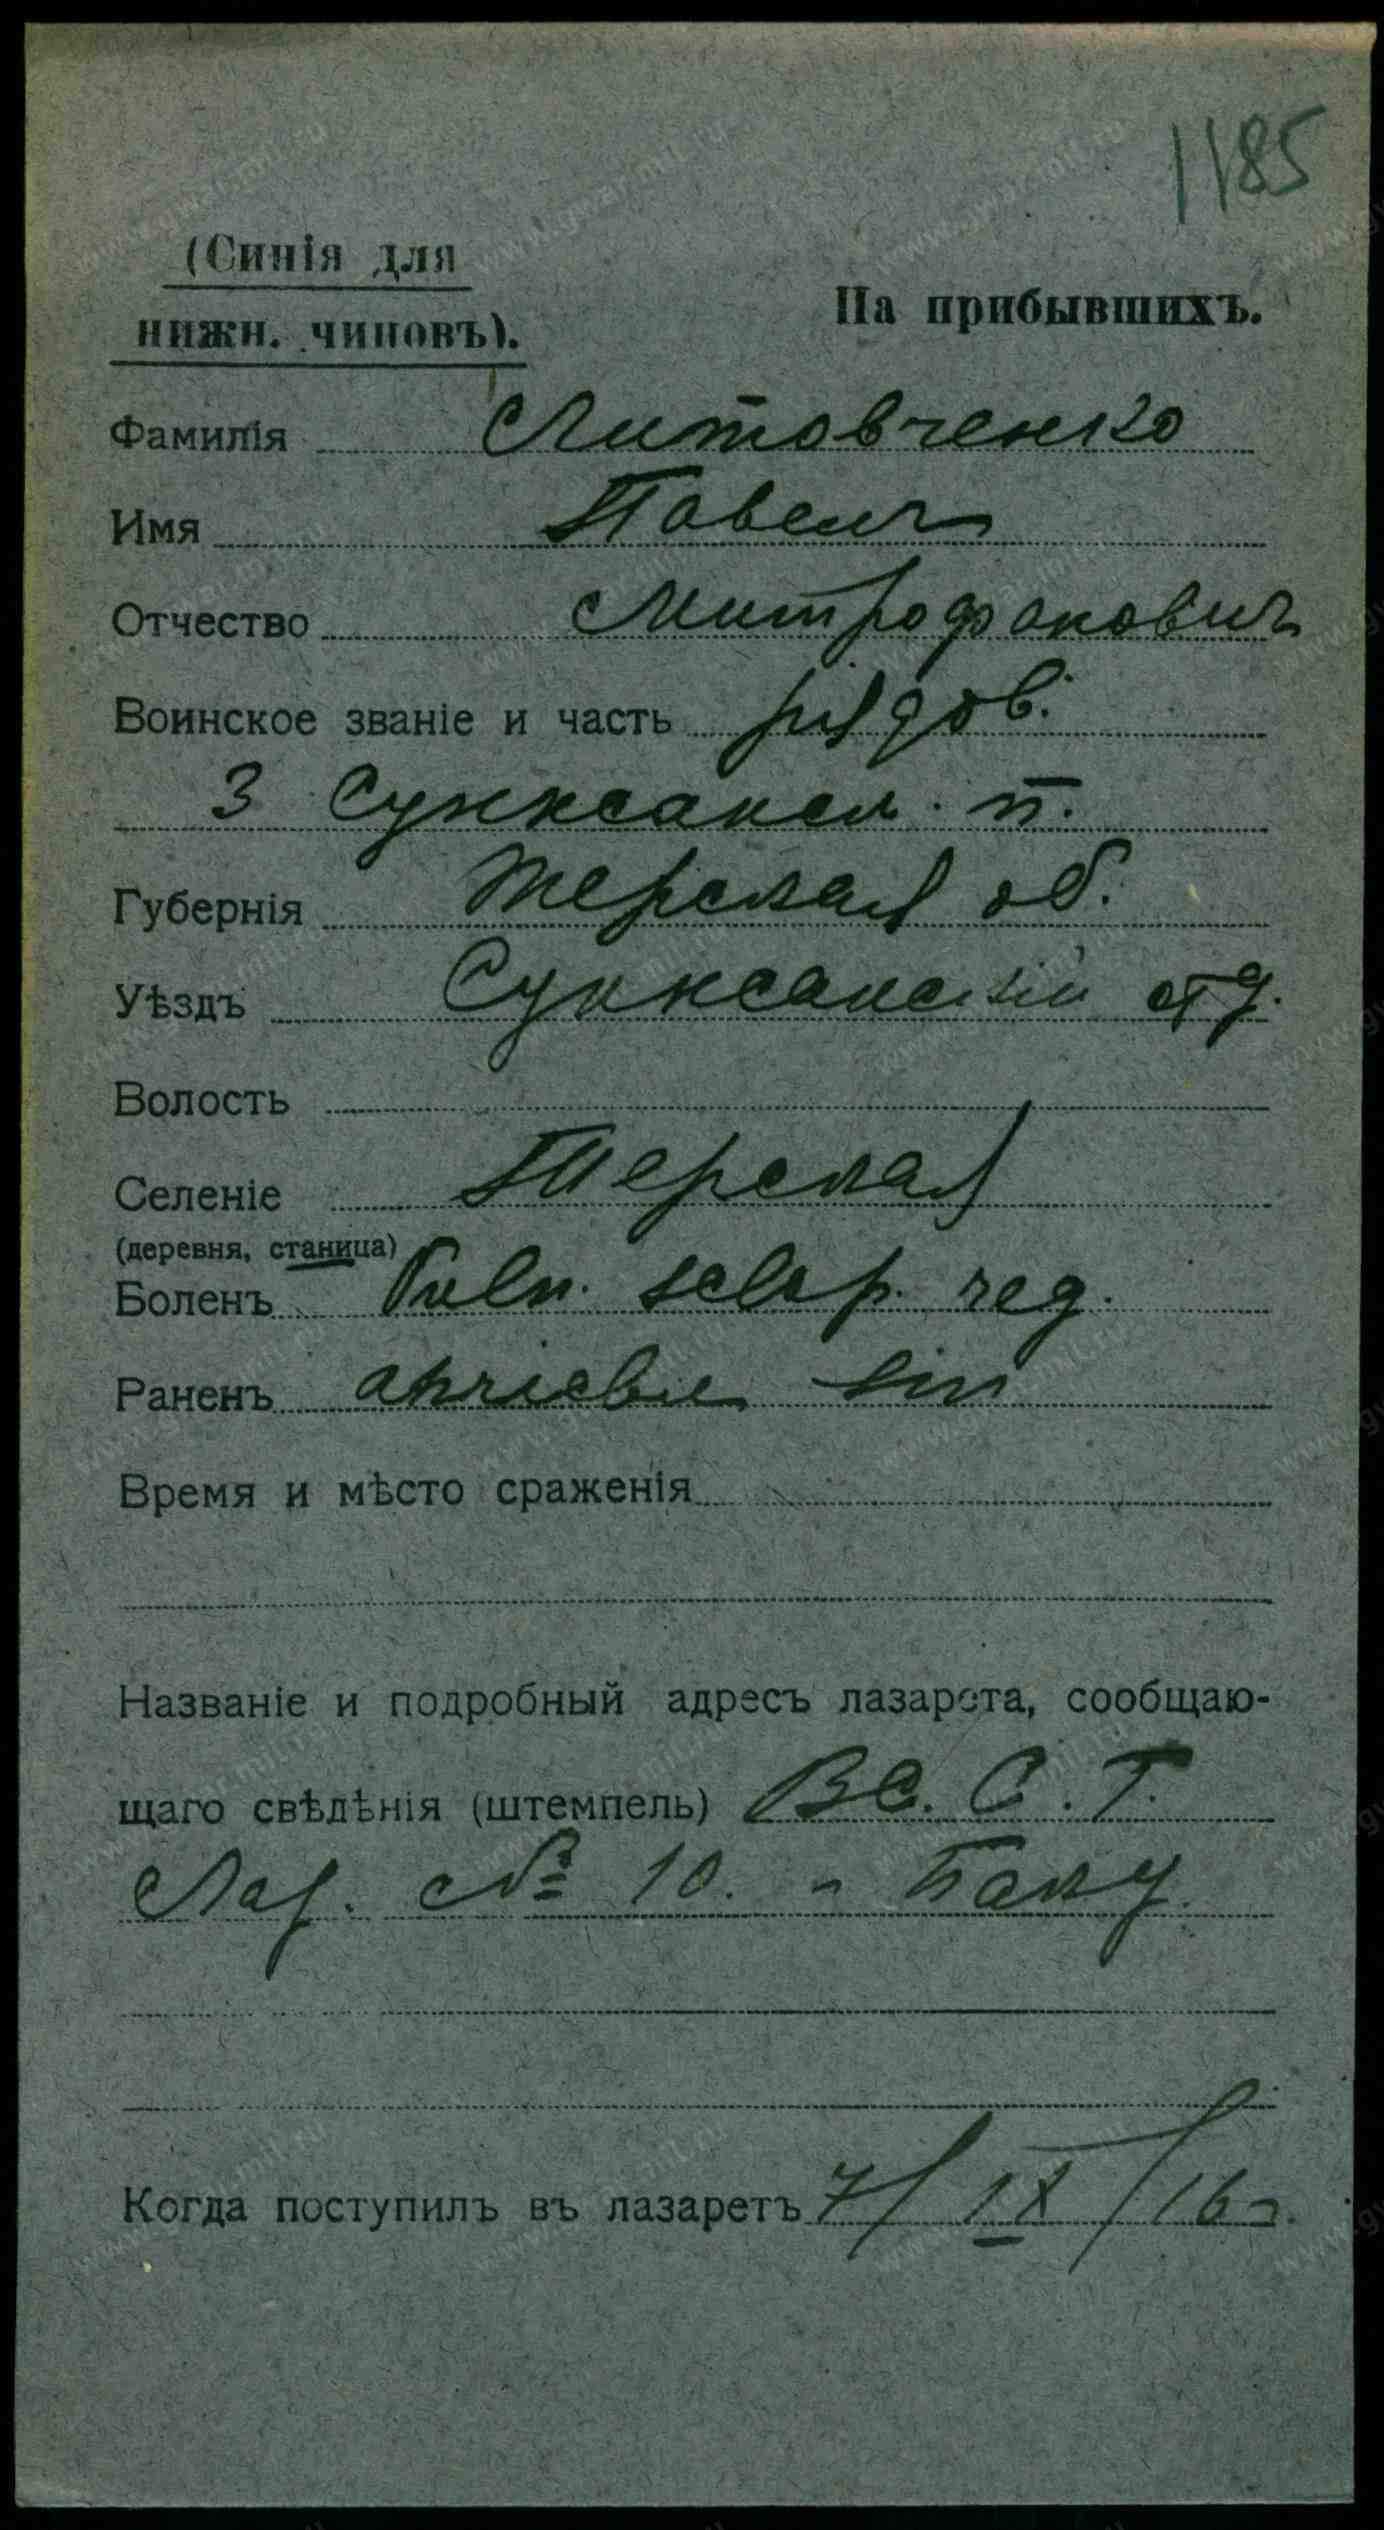 1185
(Синія для
нижн. чиновъ).
На прибывшихъ.
Фамилія Литовченко
Имя Павелъ
Отчество Митрофанович
Воинское званіе и часть рядов.
3 Сунженск. п.
Губернія Терская об.
Уѣздъ Сунженский отд.
Волость
Селеніе Терская
(деревня, станица)
Боленъ Vuln. sclop. reg.
Раненъ sin
Время и мѣсто сраженія
Названіе и подробный адресъ лазарета, сообщаю-
щаго свѣдѣнія (штемпель) В С. Г.
Лаз. № 10. - Баку
Когда поступилъ въ лазаретъ 7/IX/16 г.